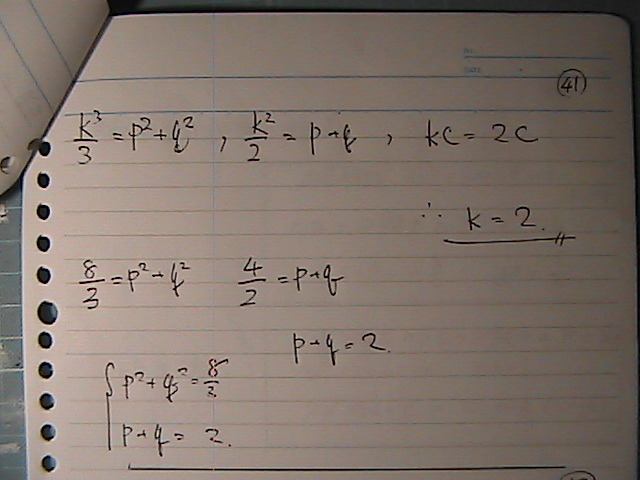 NO.
DATE
41
k³/3 = p² + q² , k²/2 = p + q , kc = 2c
∴ k = 2.
8/3 = p² + q² 4/2 = p + q
p + q = 2.
{ p² + q² = 8/3
p + q = 2.